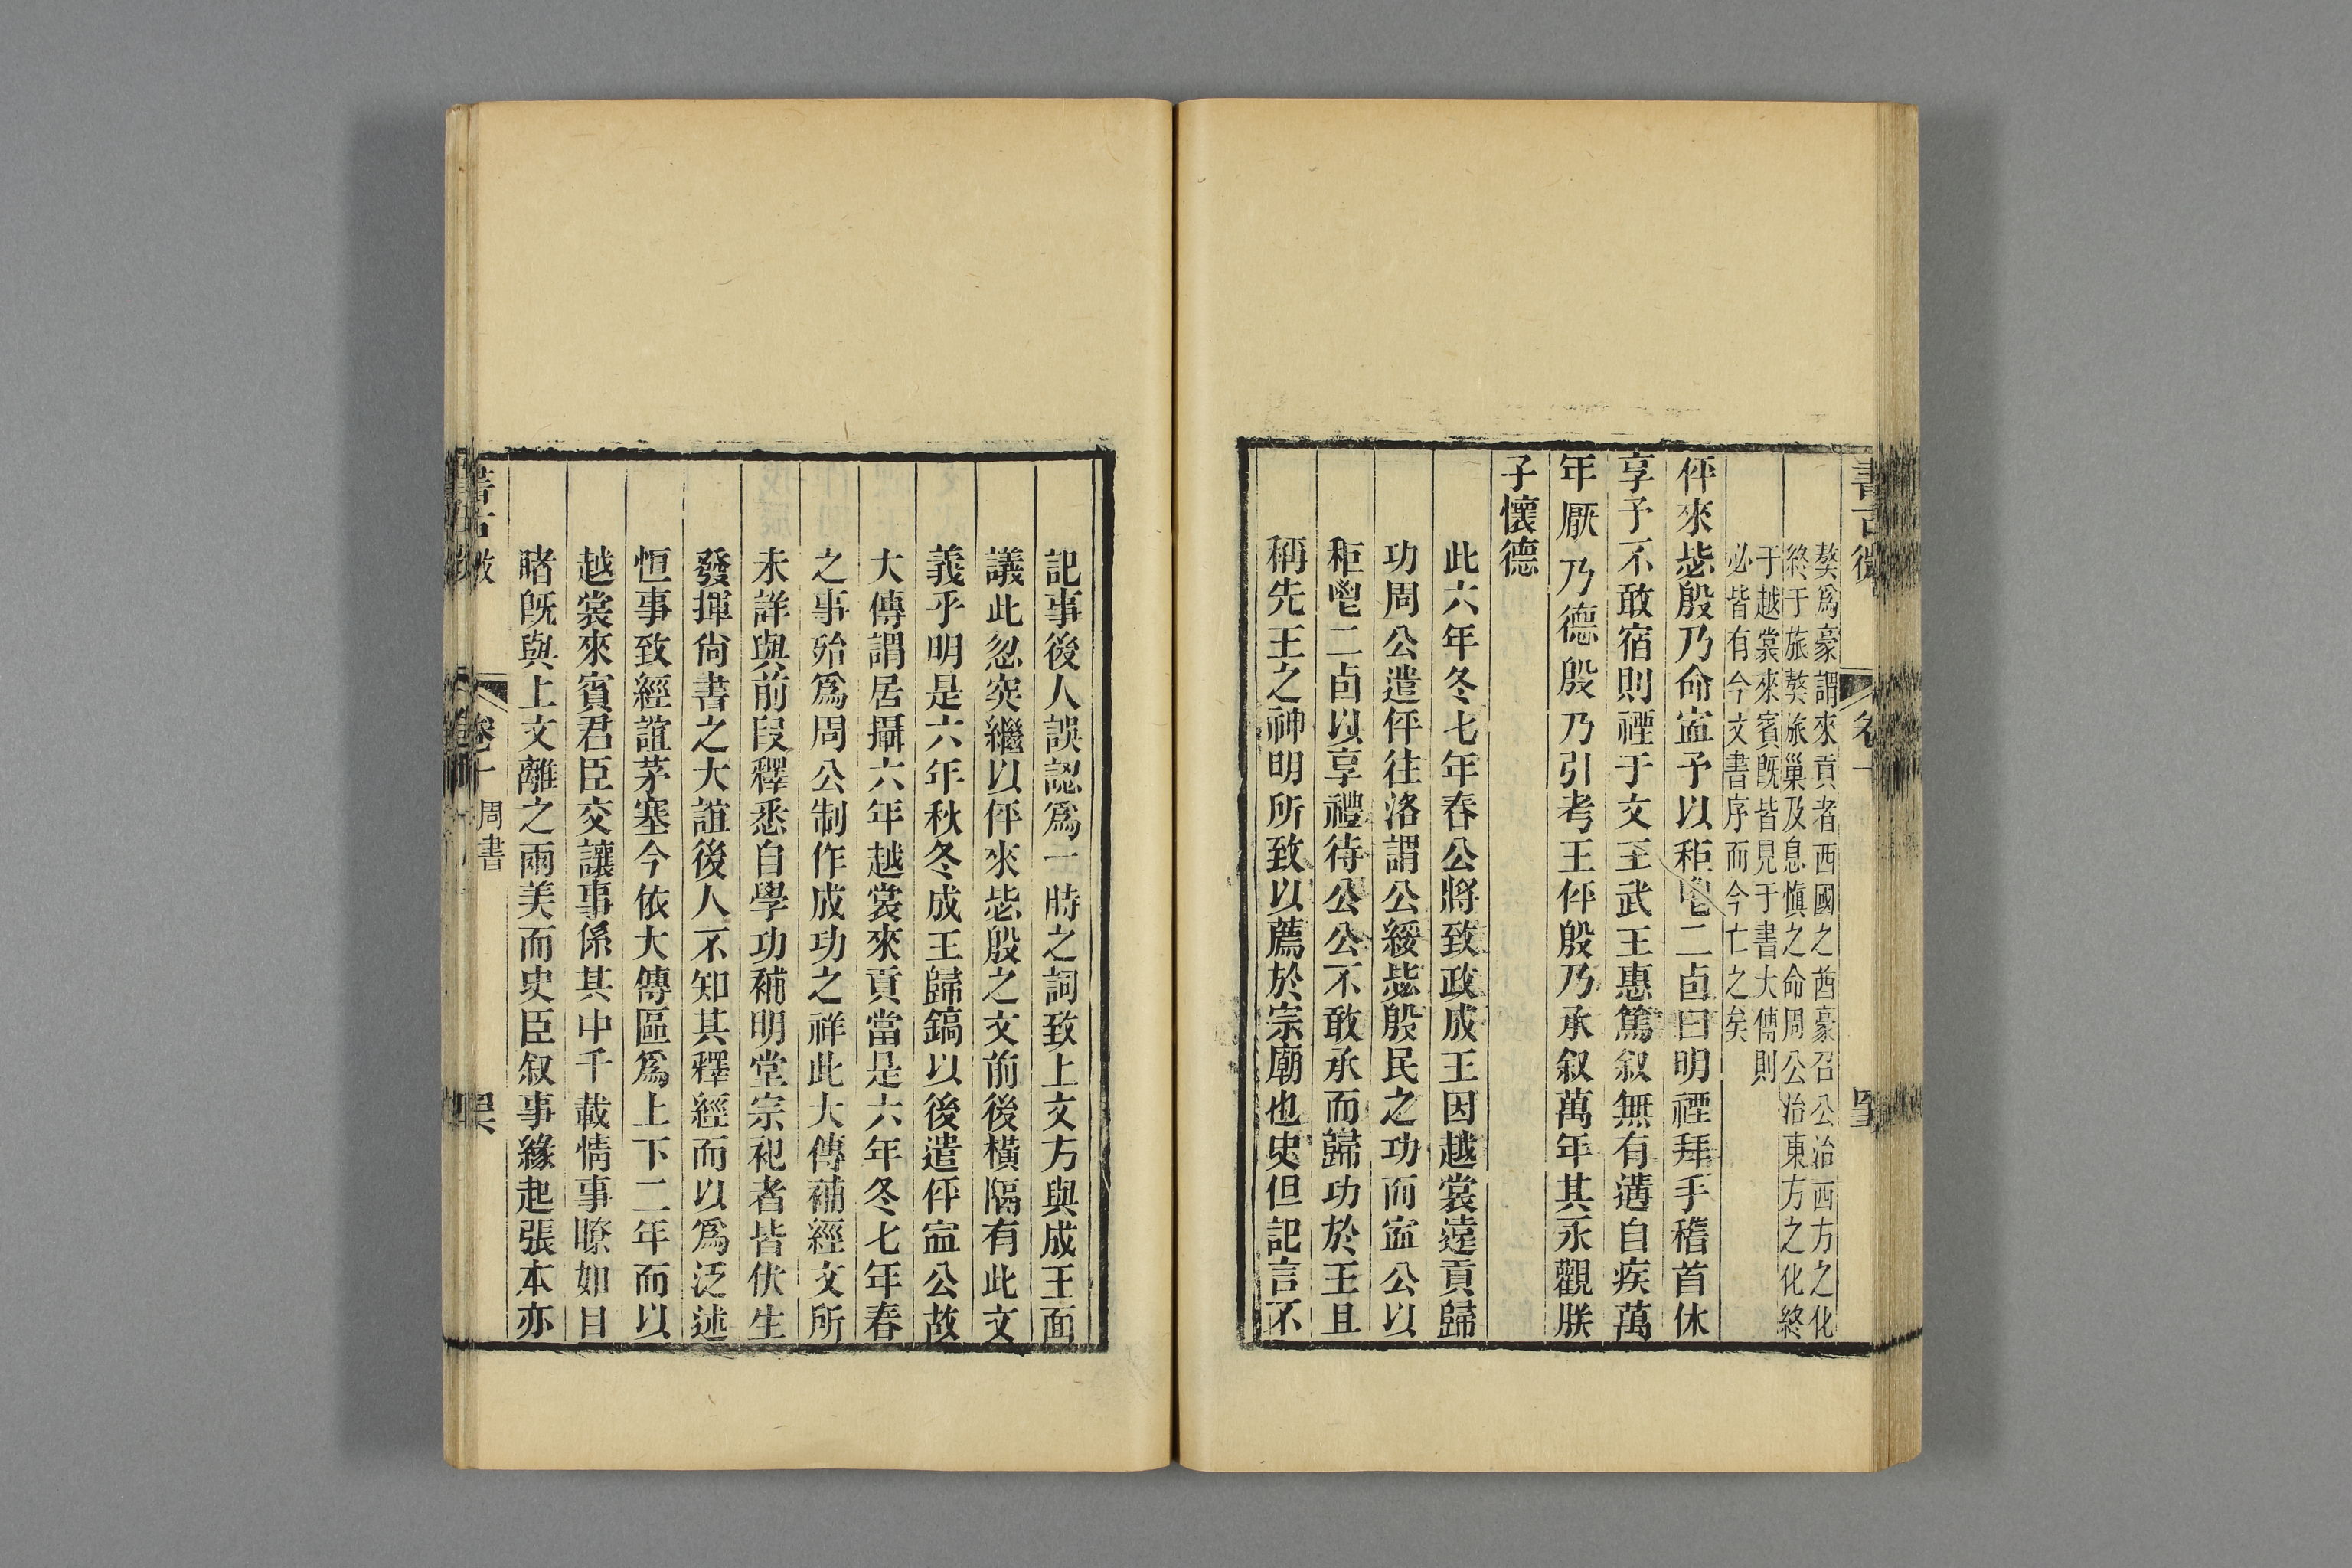 書古微
卷十
獒爲豪謂來貢者西國之酋豪召公治西方之化
終于旅獒旅巢及息愼之命周公治東方之化終
于越裳來賓旣皆見于書大傳則
必皆有今文書序而今亡之矣
伻來毖殷乃命寍予以秬鬯二卣曰明禋拜手稽首休
享予不敢宿則禋于文王武王惠篤叙無有遘自疾萬
年厭乃德殷乃引考王伻殷乃承叙萬年其永觀朕
子懷德
此六年冬七年春公將致政成王因越裳遠貢歸
功周公遣伻往洛謂公綏毖殷民之功而寍公以
秬鬯二卣以享禮待公公不敢承而歸功於王且
稱先王之神明所致以薦於宗廟也史但記言不
記事後人誤認爲一時之詞致上文方與成王面
議此忽突繼以伻來毖殷之文前後橫隔有此文
義乎明是六年秋冬成王歸鎬以後遣伻寍公故
大傳謂居攝六年越裳來貢當是六年冬七年春
之事殆爲周公制作成功之祥此大傳補經文所
未詳與前段釋悉自學功補明堂宗祀者皆伏生
發揮尙書之大誼後人不知其釋經而以爲泛述
恒事致經誼茅塞今依大傳區爲上下二年而以
越裳來賓君臣交讓事係其中千載情事瞭如目
睹旣與上文離之兩美而史臣叙事緣起張本亦
書古微
卷十 周書